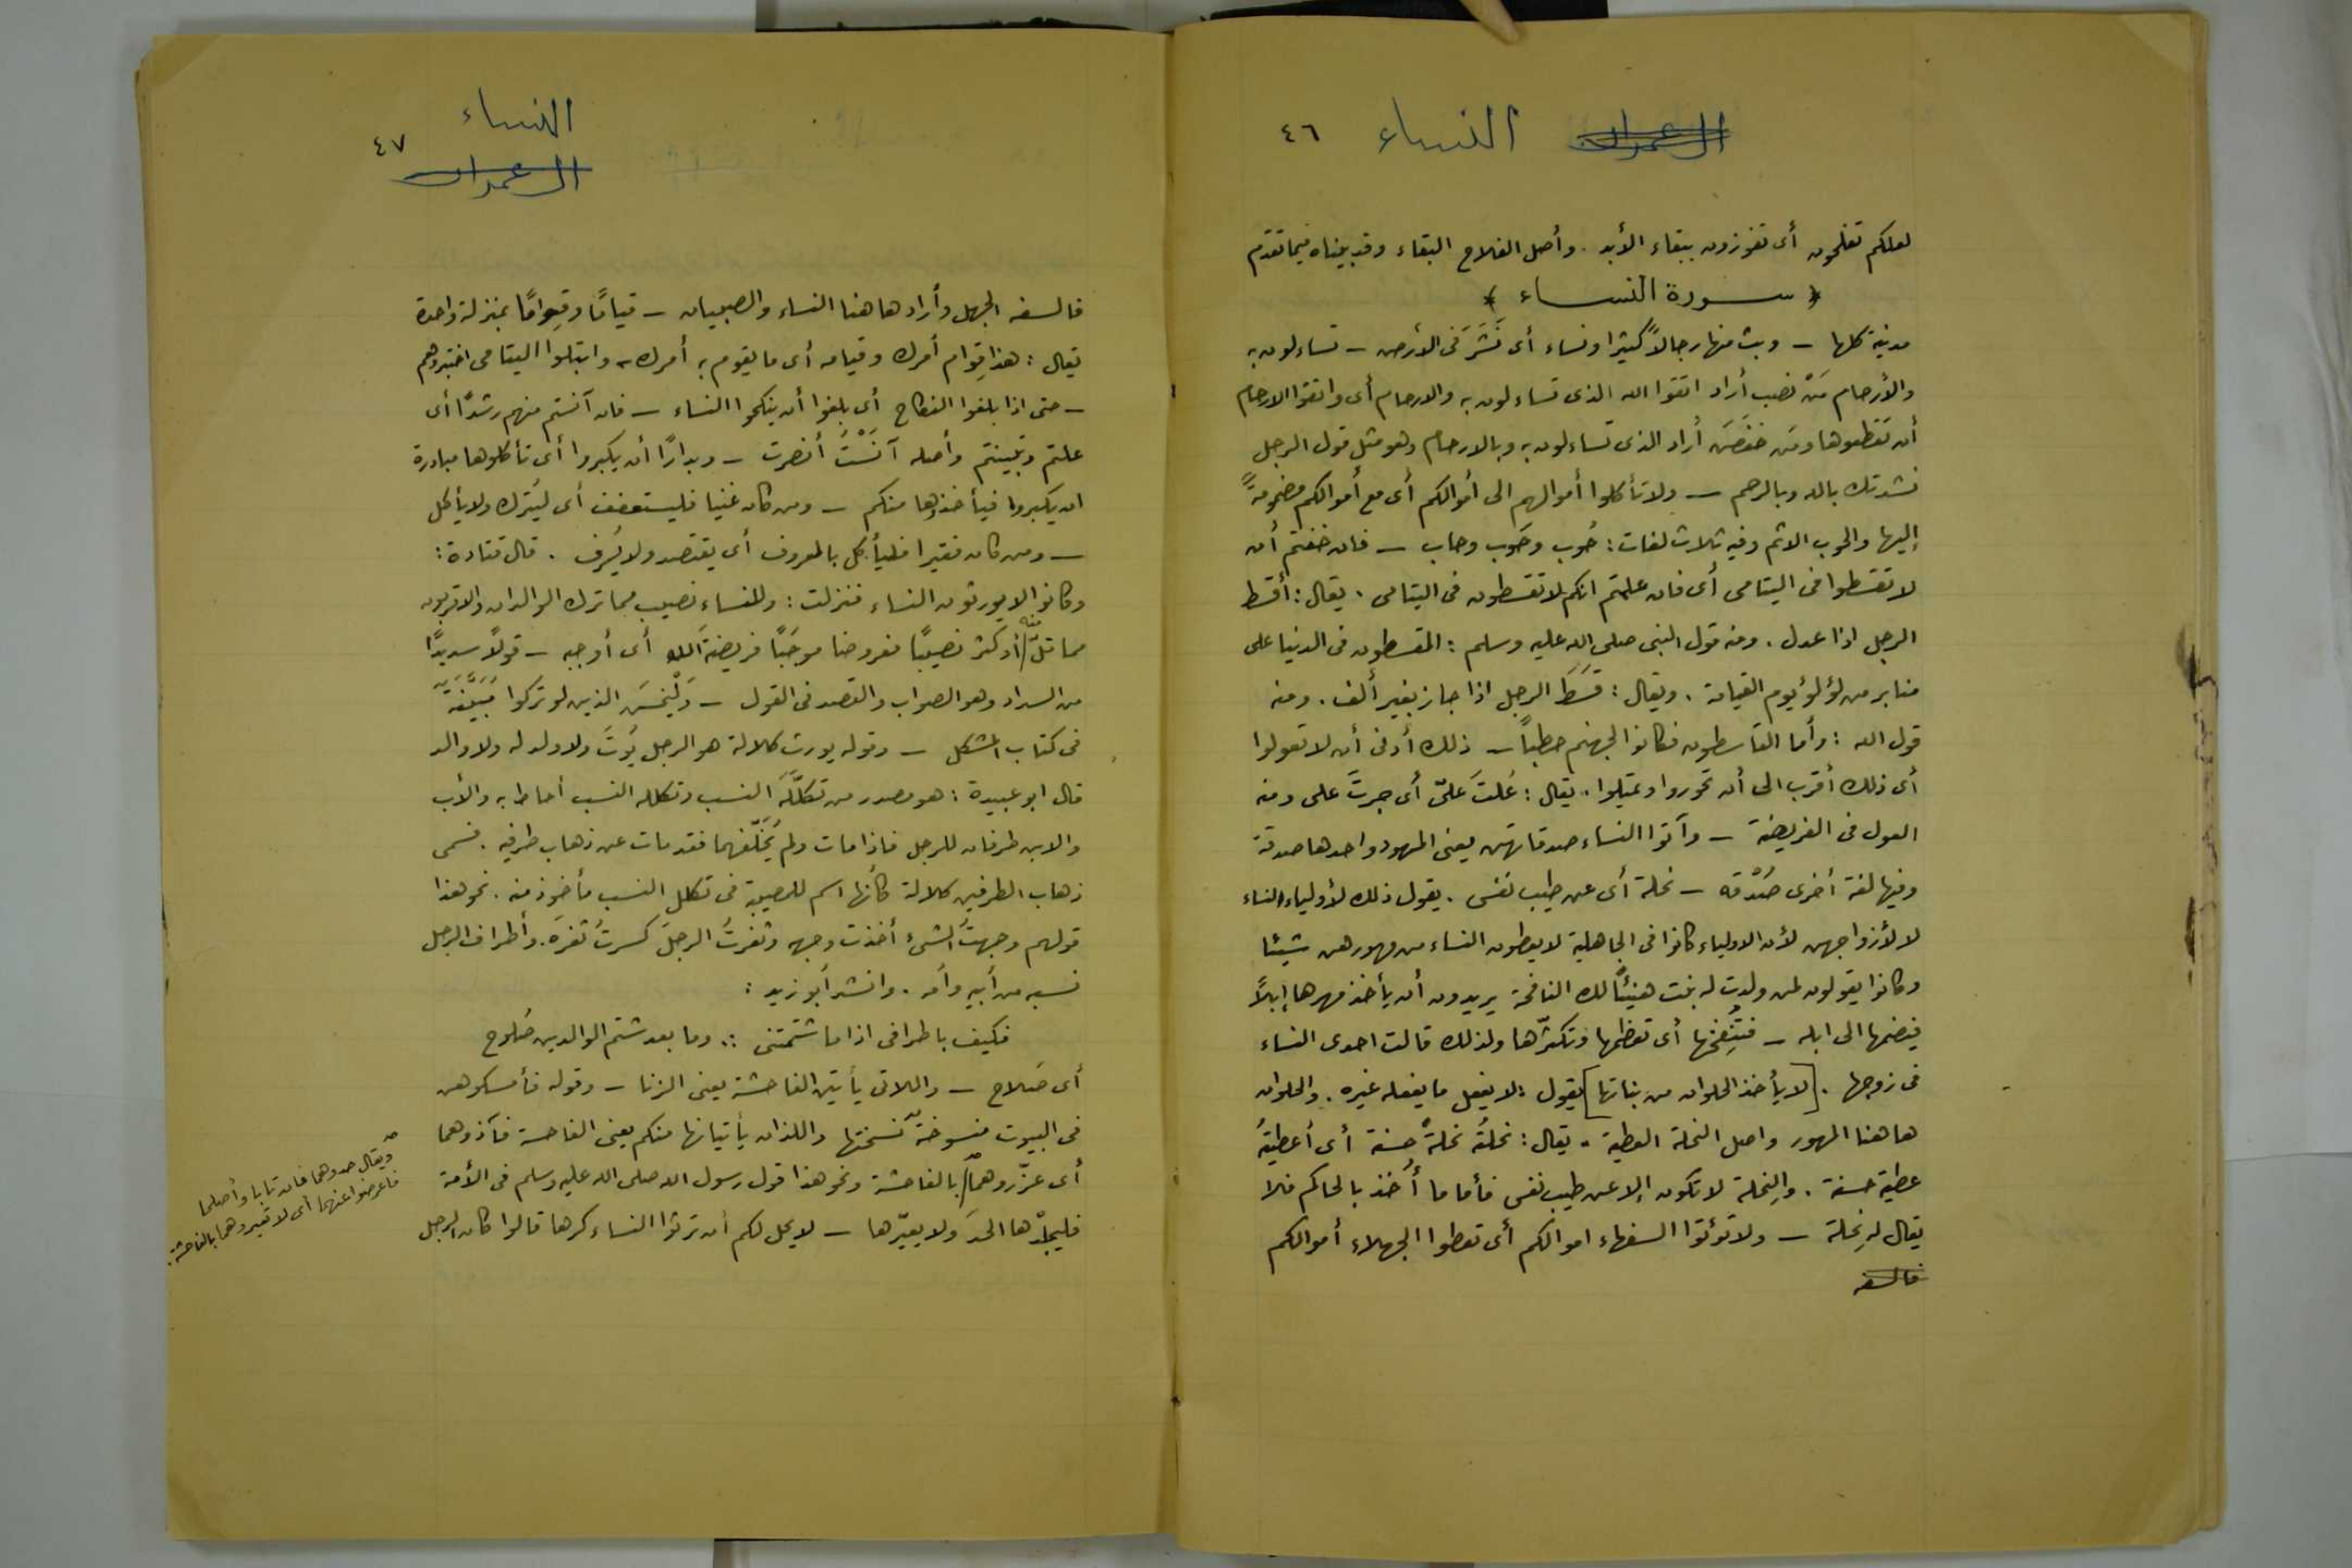 ال عمران النساء ٤٦
لعلكم تفلحون أى تفوزون ببقاء الأبد . وأصل الفلاح البقاء وقد بيناه فيما تقدم
﴿ ســـورة النســـاء ﴾
مدنية كلها – وبث منها رجالاً كثيرا ونساء أى نَشَرَ فى الأرض – تساءلون به
والأرحام مَنْ نصب أراد اتقوا الله الذى تساءلون به والارحام أى واتقوا الارحام
أن تقطعوها ومَن خفضَ أراد الذى تساءلون به وبالارحام وهو مثل قول الرجل
نشدتك بالله وبالرحم – ولا تأكلوا أموالهم الى أموالكم أى مع أموالكم مضمومةً
إليها والحوب الاثم وفيه ثلاث لغات : حُوب وحَوب وحاب – فان خفتم أن
لا تقسطوا فى اليتامى أى فان علمتم انكم لا تقسطون فى اليتامى . يقال : أقسط
الرجل اذا عدل . ومنه قول النبى صلى الله عليه وسلم : المقسطون فى الدنيا على
منابر من لؤلؤ يوم القيامة . ويقال : قَسَطَ الرجل اذا جار بغير ألف . ومنه
قول الله : وأما القاسطون فكانوا لجهنم حطباً – ذلك أدنى أن لا تعولوا
أى ذلك أقرب الى أن تجوروا وتميلوا . يقال : عُلتَ علىّ أى جرتَ على ومنه
العول فى الفريضة – وآتوا النساء صدقاتهن يعنى المهور واحدها صدقة
وفيها لغة أخرى صُدْقه – نحلة أى عن طيب نفس . يقول ذلك لأولياء النساء
لا لأزواجهن لأن الاولياء كانوا فى الجاهلية لا يعطون النساء من مهورهن شيئا
وكانوا يقولون لمن ولدت له بنت هنيئًا لك النافجة يريدون أن يأخذ مهرها إبلاً
فيضمها الى ابله – فتُنفجها أى تعظمها وتكثرها ولذلك قالت احدى النساء
فى زوجها . [ لا يأخذ الحلوان من بناتها ] يقول : لا يفعل ما يفعله غيره . والحلوان
هاهنا المهور واصل النحلة العطية . يقال : نحلتُه نحلةً حسنة أى أعطيتُه
عطية حسنة . والنِحلة لا تكون إلا عن طيب نفس فأما ما أُخذ بالحاكم فلا
يقال له نِحلة – ولا تؤتوا السفهاء اموالكم أى تعطوا الجهلاء أموالكم
فالسفه
النساء
٤٧ ال عمران
فالسفه الجهل وأراد هاهنا النساء والصبيان – قيامًا وقِوامًا بمنزلة واحدة
يقال : هذا قِوام أمرك وقيامه أى ما يقوم به أمرك – وابتلوا اليتامى اختبروهم
– حتى اذا بلغوا النكاح أى بلغوا أن ينكحوا النساء – فان آنستم منهم رشدًا أى
علمتم وتبينتم وأصله آنَسْتُ أبصرت – وبدارًا أن يكبروا أى تأكلوها مبادرة
ان يكبروا فيأخذوها منكم – ومن كان غنيا فليستعفف أى ليَترك ولا يأكل
– ومن كان فقيرا فليأكل بالمعروف أى يقتصد ولا يُسرف . قال قتادة :
وكانوا لا يورثون النساء فنزلت : وللنساء نصيب مما ترك الوالدان والاقربون
مما قلّ منه أو كثر نصيبًا مفروضا موجَبًا فريضةَ الله أى أوجبه – قولًا سديدًا
من السداد وهو الصواب والقصد فى القول – وَلْيَخشَ الذين لو تركوا مُبَيّنةَ
فى كتاب المشكل – وقوله يورث كلالة هو الرجل يموتُ ولا ولد له ولا والد
قال ابو عبيدة : هو مصدر من تكلَّلَهُ النسب وتكلله النسب أحاط به والأب
والابن طرفان للرجل فاذا مات ولم يُخَلّفهما فقد مات عن ذهاب طرفيه . فسمى
ذهاب الطرفين كلالة كأنها اسم للمصيبة فى تكلل النسب مأخوذ منه . نحو هذا
قولهم وجهتُ الشىء أخذت وجهه وثغرتُ الرجلَ كسرتُ ثغرَه . وأطراف الرجل
نسبه من أبيه وأمه . وانشد أبو زيد :
فكيف باطرافى اذا ما شتمتنى ∴ وما بعد شتم الوالدين صُلوح
أى صَلاح – واللاتى يأتين الفاحشة يعنى الزنا – وقوله فأمسكوهن
فى البيوت منسوخةٌ نسختها واللذان يأتيانها منكم يعنى الفاحشة فآذوهما
أى عزّروهما بالفاحشة ونحو هذا قول رسول الله صلى الله عليه وسلم فى الأمة
فليجلدّها الحدَ ولا يعيّرها – لا يحل لكم أن ترثوا النساء كرها قالوا كان الرجل
ويقال حدوهما فان تابا وأصلحا
فاعرضوا عنهما أى لا تعيروهما بالفاحشة